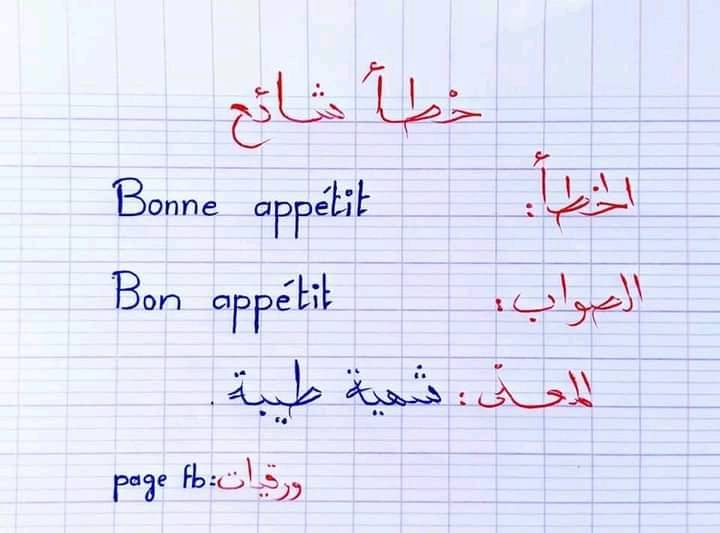 خطأ شائع
الخطأ: Bonne appétit
الصواب: Bon appétit
المعنى: شهية طيبة.
page fb: ورقيات